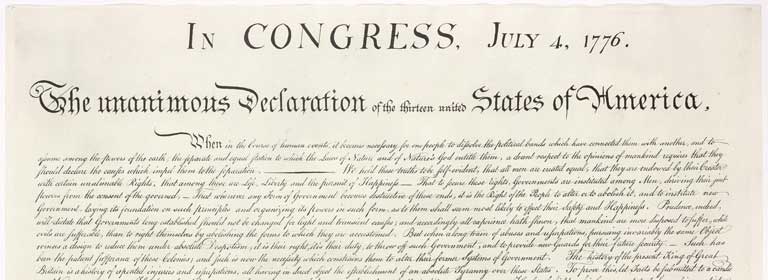 IN CONGRESS, JULY 4, 1776.
The unanimous Declaration of the thirteen united States of America,
When in the Course of human events, it becomes necessary for one people to dissolve the political bands which have connected them with another, and to
assume among the powers of the earth, the separate and equal station to which the Laws of Nature and of Nature's God entitle them, a decent respect to the opinions of mankind requires that they
should declare the causes which impel them to the separation. ——— We hold these truths to be self-evident, that all men are created equal, that they are endowed by their Creator
with certain unalienable Rights, that among these are Life, Liberty and the pursuit of Happiness.— That to secure these rights, Governments are instituted among Men, deriving their just
powers from the consent of the governed,— That whenever any Form of Government becomes destructive of these ends, it is the Right of the People to alter or to abolish it, and to institute new
Government, laying its foundation on such principles and organizing its powers in such form, as to them shall seem most likely to effect their Safety and Happiness. Prudence, indeed,
will dictate that Governments long established should not be changed for light and transient causes; and accordingly all experience hath shewn, that mankind are more disposed to suffer, while
evils are sufferable, than to right themselves by abolishing the forms to which they are accustomed. But when a long train of abuses and usurpations, pursuing invariably the same Object
evinces a design to reduce them under absolute Despotism, it is their right, it is their duty, to throw off such Government, and to provide new Guards for their future security.— Such has
been the patient sufferance of these Colonies; and such is now the necessity which constrains them to alter their former Systems of Government. The history of the present King of Great
Britain is a history of repeated injuries and usurpations, all having in direct object the establishment of an absolute Tyranny over these States. To prove this, let Facts be submitted to a candid